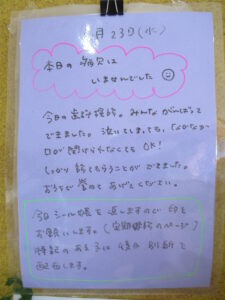 月23日(水)
本日の病欠は
いませんでした
今日の歯科検診。みんながんばって
できました。泣いてしまっても、なかなか
口が開けられなくてもOK!
しっかり診てもらうことができました。
おうちで誉めてあげてください。
今日シール帳を返しますので印を
お願いします。(定期健診のページ)
特記のある子は後日別紙を
配布します。